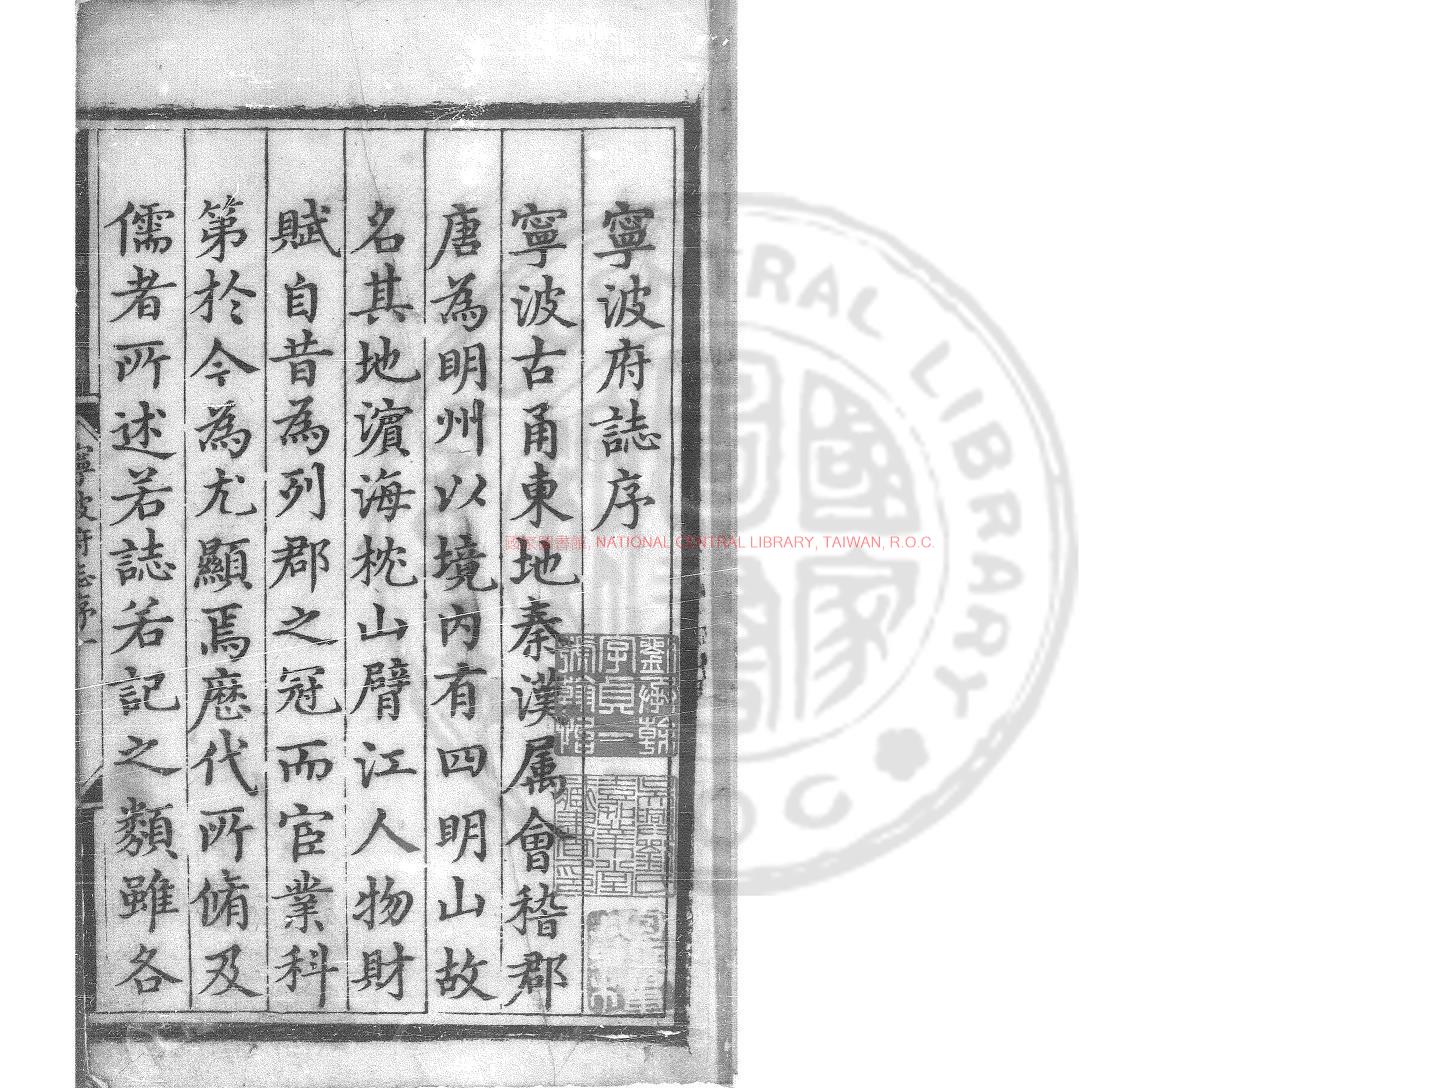 寧波府誌序
寧波古甬東地秦漢属會稽郡
唐為明州以境内有四明山故
名其地濵海枕山臂江人物財
賦自昔為列郡之冠而宦業科
第於今為尤顯焉歷代所脩及
儒者所述若誌若記之類雖各
寧波府志序一
劉承幹
字貞一
號翰怡
吳興劉氏
嘉業堂
藏書印
國家圖書館, NATIONAL CENTRAL LIBRARY, TAIWAN, R.O.C.